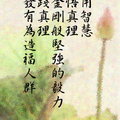 用智慧
悟真理
金剛般堅強的毅力
踐真理
發有為造福人群